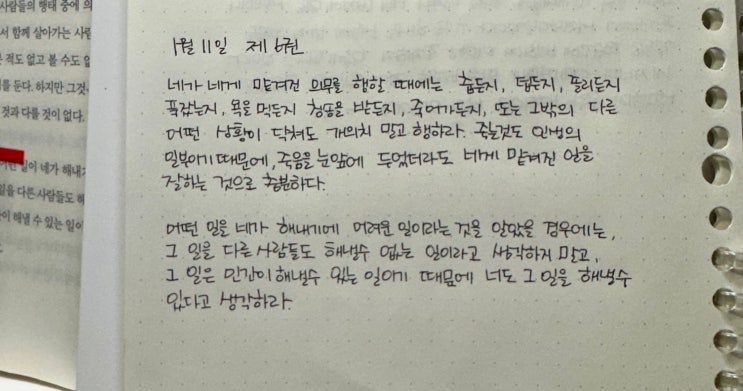 사람들의 행태 중에 의
서 함께 살아가는 사람
적도 없고 볼 수도 없
를 둔다. 하지만 그것
것과 다를 것이 없다.
일이 네가 해내기
일을 다른 사람들도 해
이 해낼 수 있는 일이
1월 11일 제 6권
네가 네게 맡겨진 의무를 행할 때에는 춥든지, 덥든지, 졸리든지
푹잤는지, 욕을 먹든지 칭송을 받든지, 죽어가든지, 또는 그밖의 다른
어떤 상황이 닥쳐도 개의치 말고 행하라. 죽는것도 인생의
일부이기 때문에, 죽음을 눈앞에 두었더라도 네게 맡겨진 일을
잘하는 것으로 충분하다.
어떤 일을 네가 해내기에 어려운 일이라는 것을 알았을 경우에는,
그 일을 다른 사람들도 해낼수 없는 일이라고 생각하지 말고,
그 일은 인간이 해낼수 있는 일이기 때문에 너도 그 일을 해낼수
있다고 생각하라.